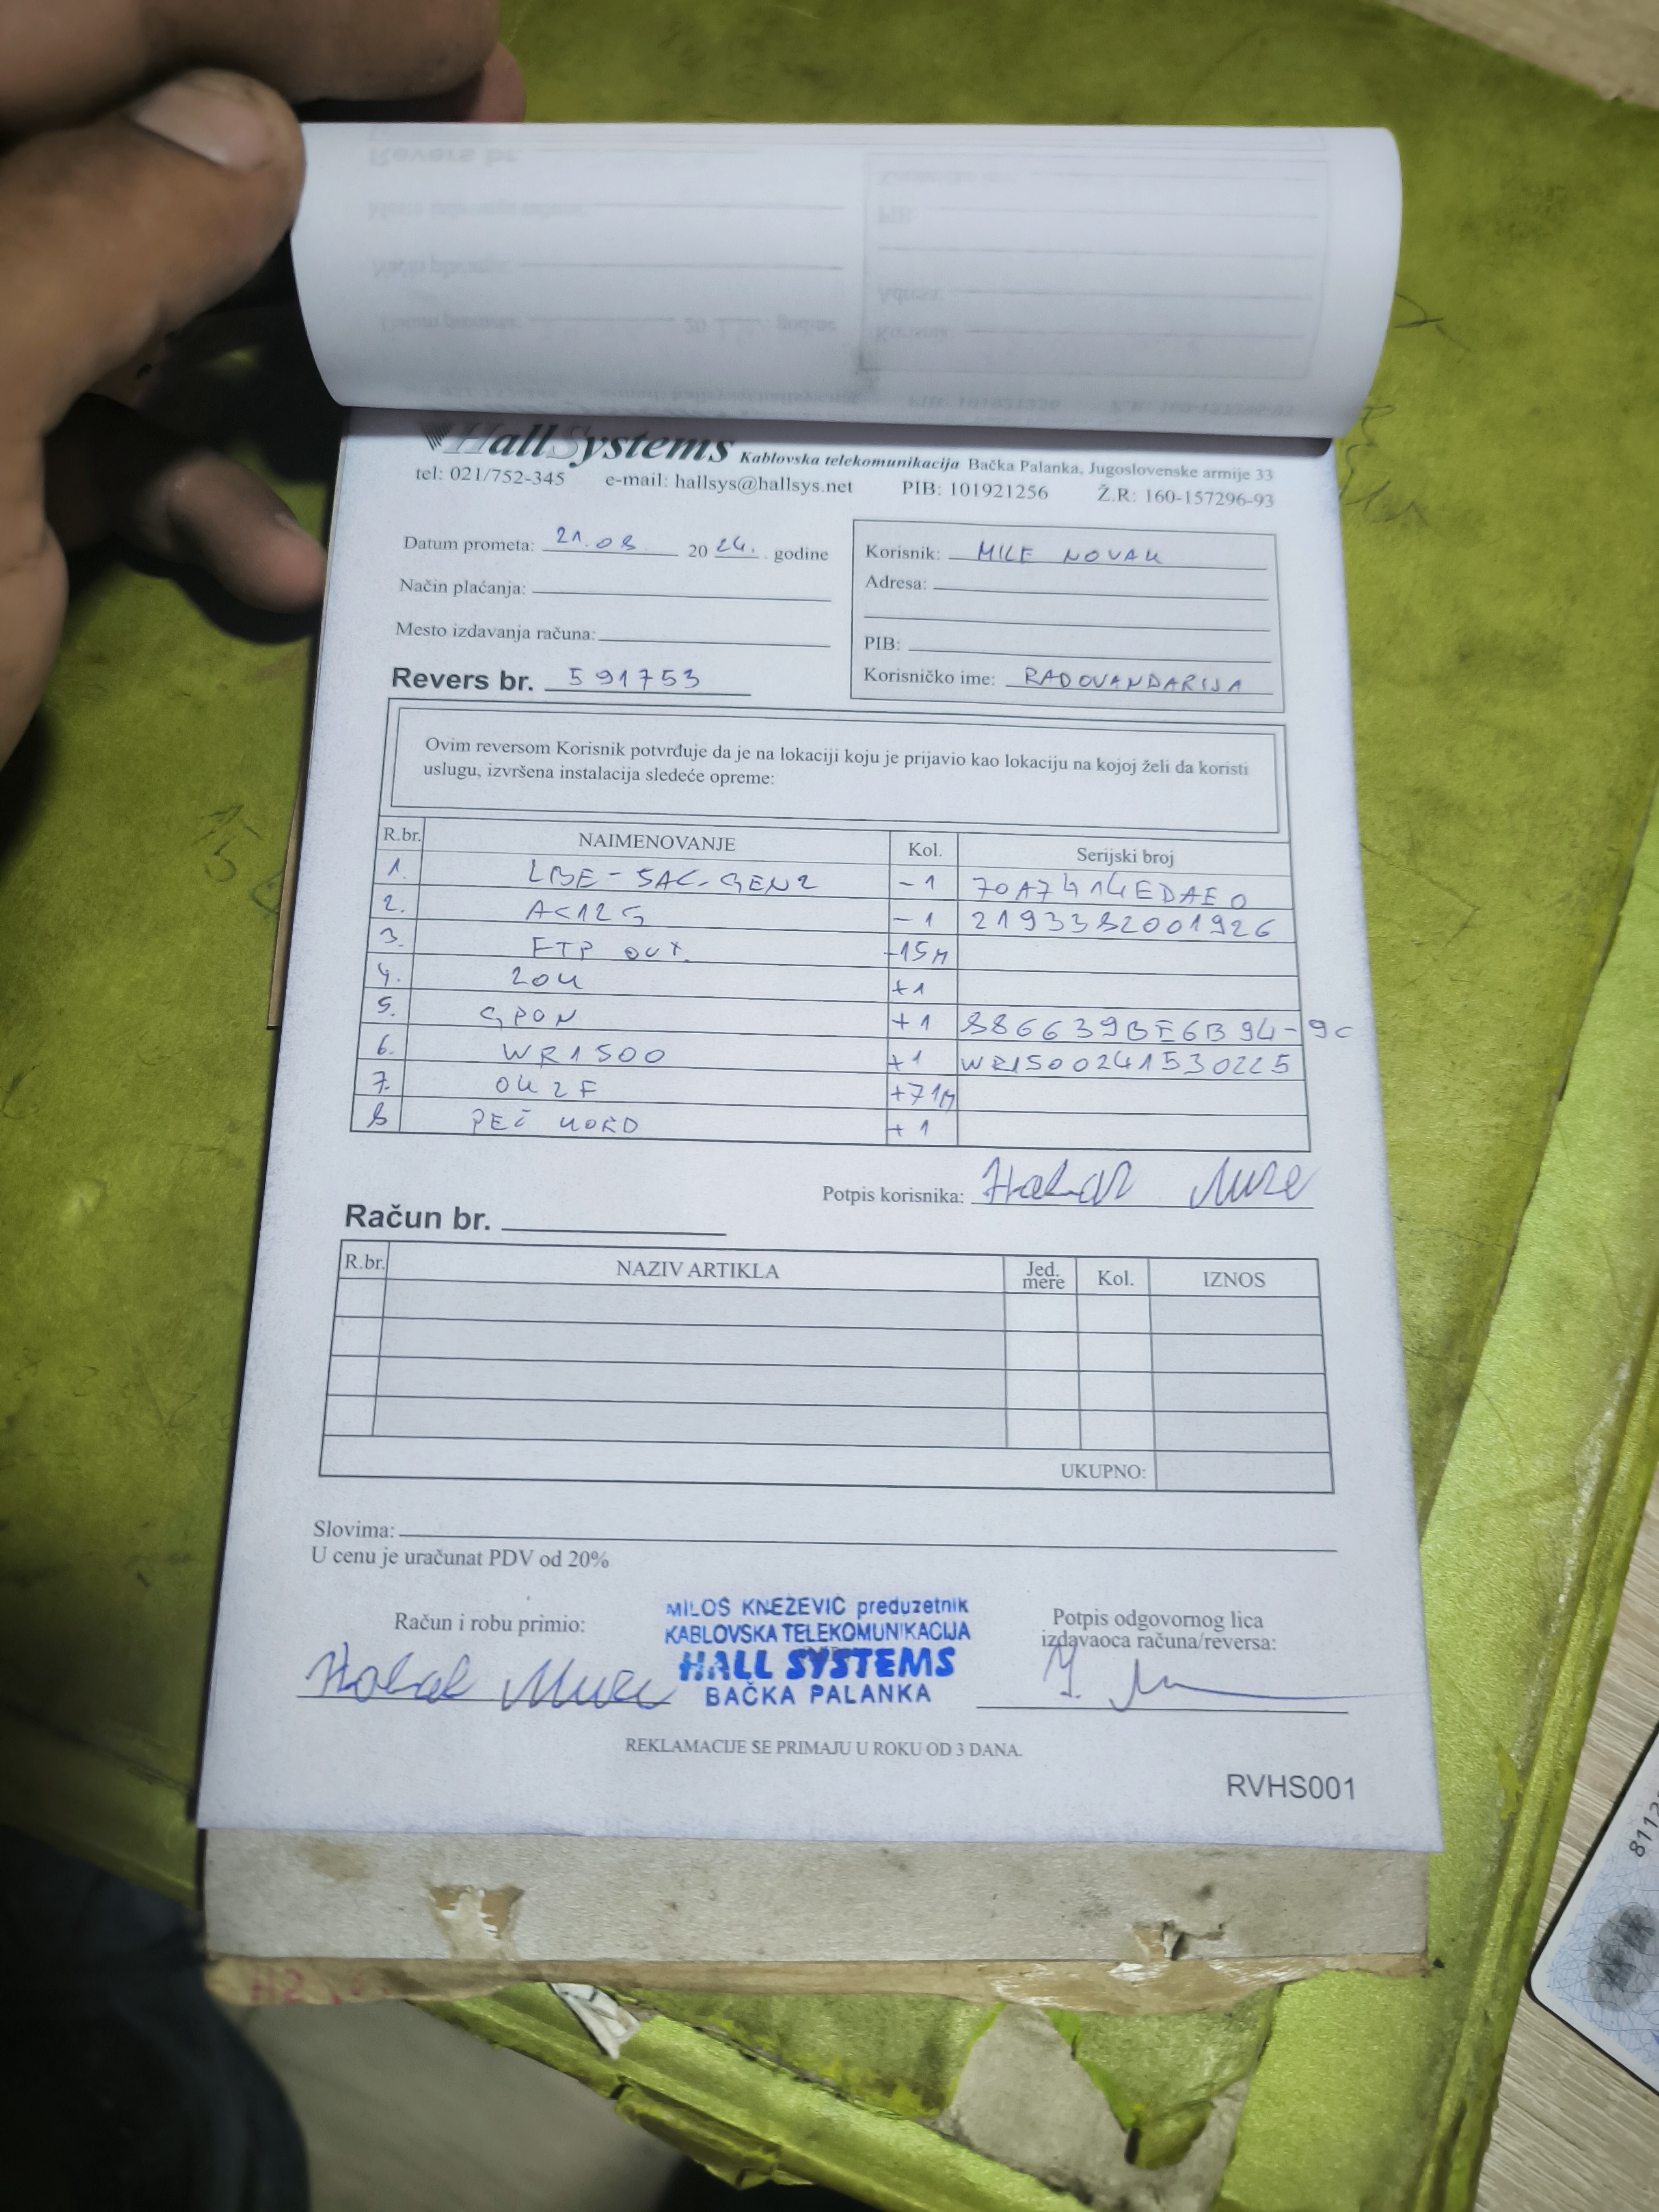 HallSystems Kablovska telekomunikacija Bačka Palanka, Jugoslovenske armije 33
tel: 021/752-345 e-mail: hallsys@hallsys.net PIB: 101921256 Ž.R: 160-157296-93
Datum prometa: 21.08 20 24. godine
Način plaćanja:
Mesto izdavanja računa:
Revers br. 591753
Korisnik: MILE NOVAK
Adresa:
PIB:
Korisničko ime: RADOVANDARIJA
Ovim reversom Korisnik potvrđuje da je na lokaciji koju je prijavio kao lokaciju na kojoj želi da koristi
uslugu, izvršena instalacija sledeće opreme:
R.br. NAIMENOVANJE Kol. Serijski broj
1. LBE-5AC-GEN2 -1 70A7414EDAE0
2. AC12G -1 2193382001926
3. FTP OUT. -15M
4. ZOK +1
5. GPON +1 886639BE6B94-9C
6. WR1500 +1 WR1500241530225
7. OK2F +71M
8 PEČ KORD +1
Potpis korisnika: Novak Mile
Račun br.
R.br. NAZIV ARTIKLA Jed. mere Kol. IZNOS
UKUPNO:
Slovima:
U cenu je uračunat PDV od 20%
Račun i robu primio:
Novak Mile
MILOŠ KNEŽEVIĆ preduzetnik
KABLOVSKA TELEKOMUNIKACIJA
HALL SYSTEMS
BAČKA PALANKA
Potpis odgovornog lica
izdavaoca računa/reversa:
REKLAMACIJE SE PRIMAJU U ROKU OD 3 DANA.
RVHS001